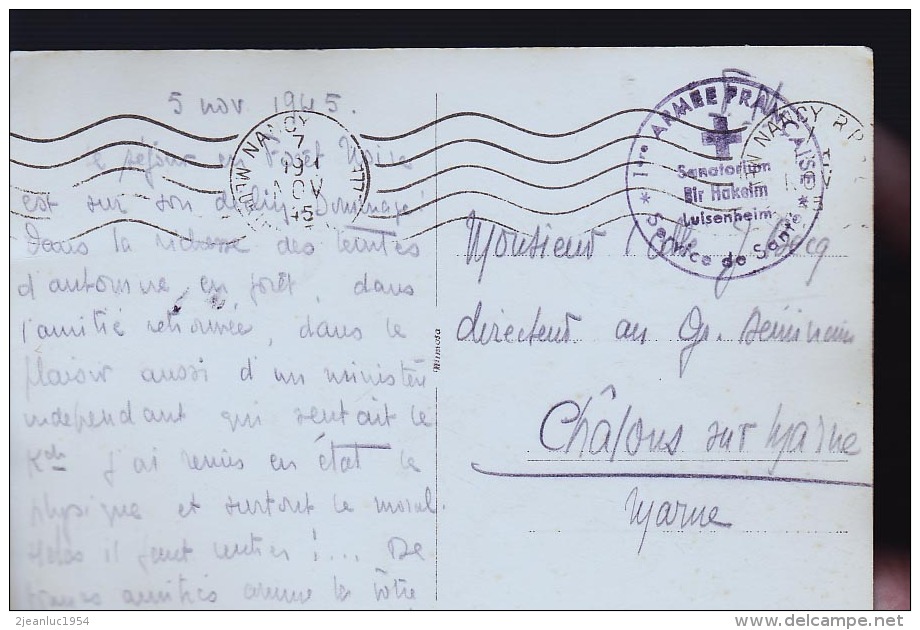 5 nov 1945.
Le séjour en Forêt Noire
est sur son déclin. Dommage!
Dans la richesse des teintes
d'automne en forêt, dans
l'amitié retrouvée, dans le
plaisir aussi d'un ministère
indépendant qui sentait le
J'ai remis en état le
physique et surtout le moral.
Hélas il faut rentrer !... De
amitiés comme la vôtre
NANCY
7
NOV
45
F.M.
1re ARMÉE FRANÇAISE
Sanatorium
Bir Hakeim
Luisenheim
* Service de Santé *
NANCY R.P.
Monsieur l'abbé
directeur au Gr. Séminaire
Châlons sur Marne
Marne
Mimosa
2jeanluc1954
delcampe.net